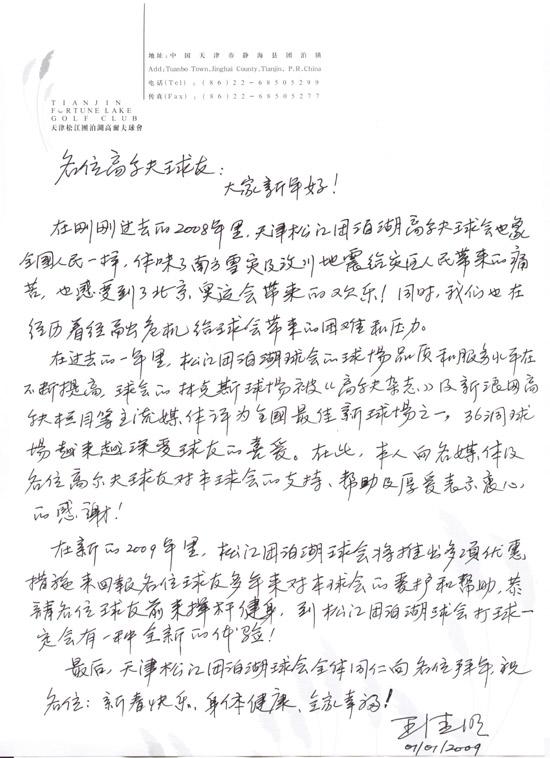 地址:中国天津市静海县团泊镇
Add:Tuanbo Town,Jinghai County,Tianjin, P.R.China
电话(Tel) : (86)22-68505299
传真(Fax) : (86)22-68505277
TIANJIN
FORTUNE LAKE
GOLF CLUB
天津松江團泊湖高爾夫球會
各位高尔夫球友:
大家新年好!
在刚刚过去的2008年里,天津松江团泊湖高尔夫球会也象
全國人民一样,体味了南方雪灾及汶川地震给灾区人民带来的痛
苦,也感受到了北京奥运会带来的欢乐!同时,我们也在
经历着经济危机给球会带来的困难和压力。
在过去的一年里,松江团泊湖球会的球場品质和服务水平在
不断提高,球会的林克斯球場被《高尔夫杂志》及新浪网高
尔夫栏目等主流媒体评为全國最佳新球場之一,36洞球
場越来越深受球友的喜爱。在此,本人向各媒体及
各位高尔夫球友对本球会的支持、帮助及厚爱表示衷心
的感谢!
在新的2009年里,松江团泊湖球会将推出多项优惠
措施来回報各位球友多年来对本球会的爱护和帮助,恭
請各位球友前来挥杆健身,到松江团泊湖球会打球一
定会有一种全新的体验!
最后,天津松江团泊湖球会全体同仁向各位拜年,祝
各位:新春快乐、身体健康、全家幸福!
01/01/2009